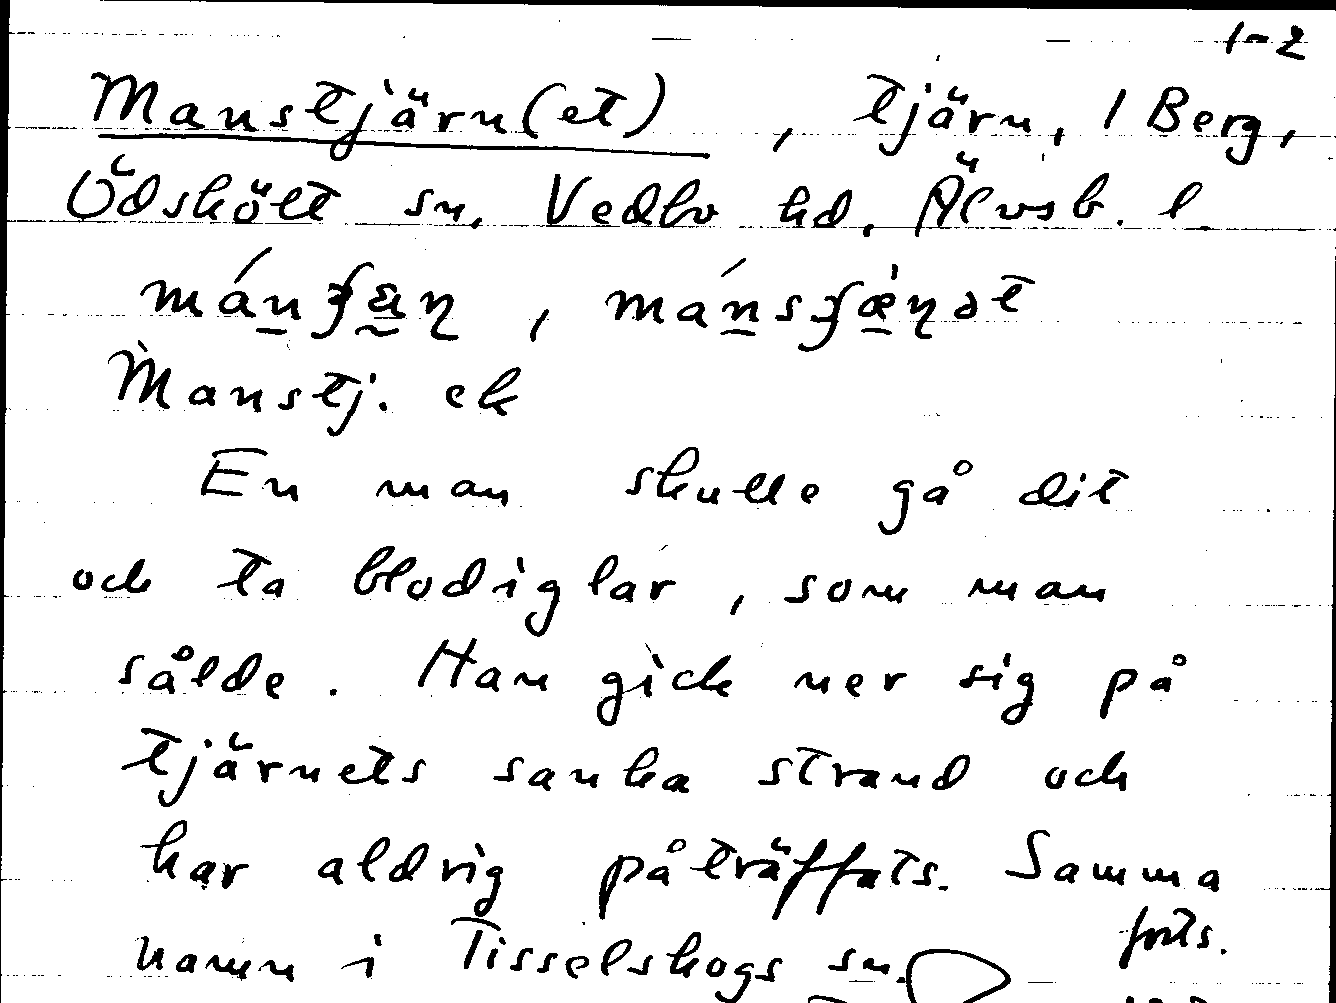 1-2
Manstjärn(et), tjärn, 1 Berg,
Ödskölt sn, Vedbo hd, Älvsb. l.
Manstj. ek
En man skulle gå dit
och ta blodiglar, som man
sålde. Han gick ner sig på
tjärnets sanka strand och
har aldrig påträffats. Samma
namn i Tisselskogs sn.
forts.